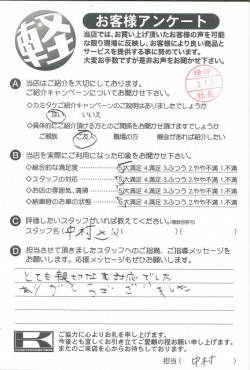 軽 お客様アンケート
当店では、お買い上げ頂いたお客様の声を可能
な限り現場に反映し、お客様により良い商品と
サービスを提供する事に努めています。
大変お手数ですが是非お声をお聞かせ下さい。
A 当店はご紹介を大切にしております。
ご紹介キャンペーンについてお聞かせ下さい。
検印
社長
◇カミタケご紹介キャンペーンのご説明はありましたでしょうか
はい いいえ
◇具体的にご紹介頂ける方とのご関係をお聞かせ頂けますでしょうか
ご親族 ご友人 職場の方 機会があれば紹介したい
B 当店を実際にご利用になった印象をお聞かせ下さい。
◇総合的な満足度 5.大満足 4.満足 3.ふつう 2.やや不満 1.不満
◇スタッフの対応 5.大満足 4.満足 3.ふつう 2.やや不満 1.不満
◇お店の雰囲気、清掃 5.大満足 4.満足 3.ふつう 2.やや不満 1.不満
◇納車時のお車の状態 5.大満足 4.満足 3.ふつう 2.やや不満 1.不満
C 評価したいスタッフがいれば教えてください。(複数回答可)
スタッフ名( 中村さん )
D 担当させて頂きましたスタッフへのご指摘、ご指導メッセージを
お願いします。応援メッセージもぜひお願いします。
とても親切な対応でした
ありがとうございました
K
ご協力に心よりお礼を申し上げます。
今後とも宜しくお引き立てご愛顧の程お願い申し上げます。
またのご来店を心からお待ちしております。
担当( 中村 )